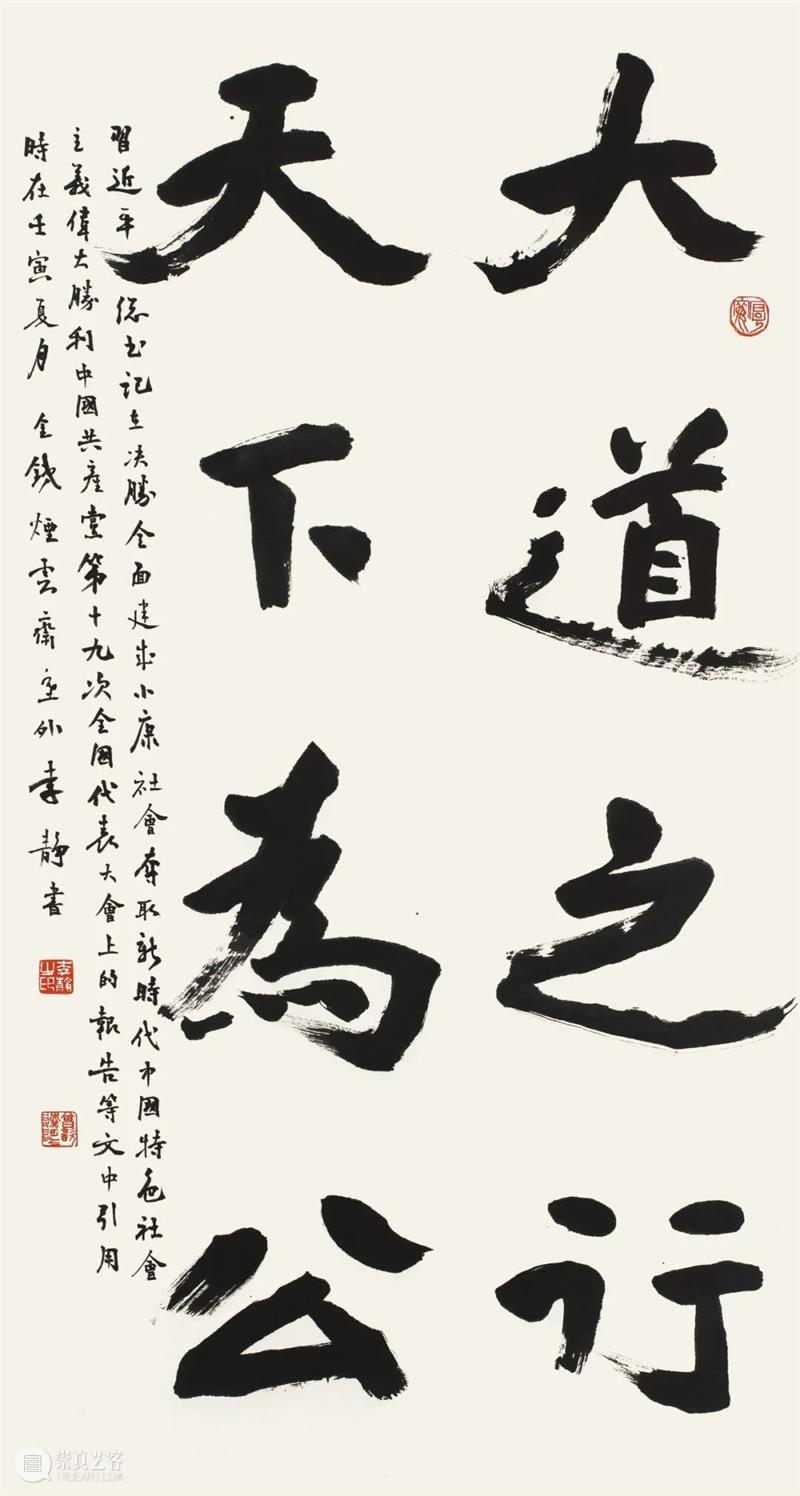 大道之行
天下為公
習近平總书記在决勝全面建成小康社會奪取新時代中國特色社會
主義偉大勝利中國共產党第十九次全國代表大會上的報告等文中引用
時在壬寅夏月 金錢煙雲齋 李靜書
李靜之印
崇真艺客
TRUEART.COM